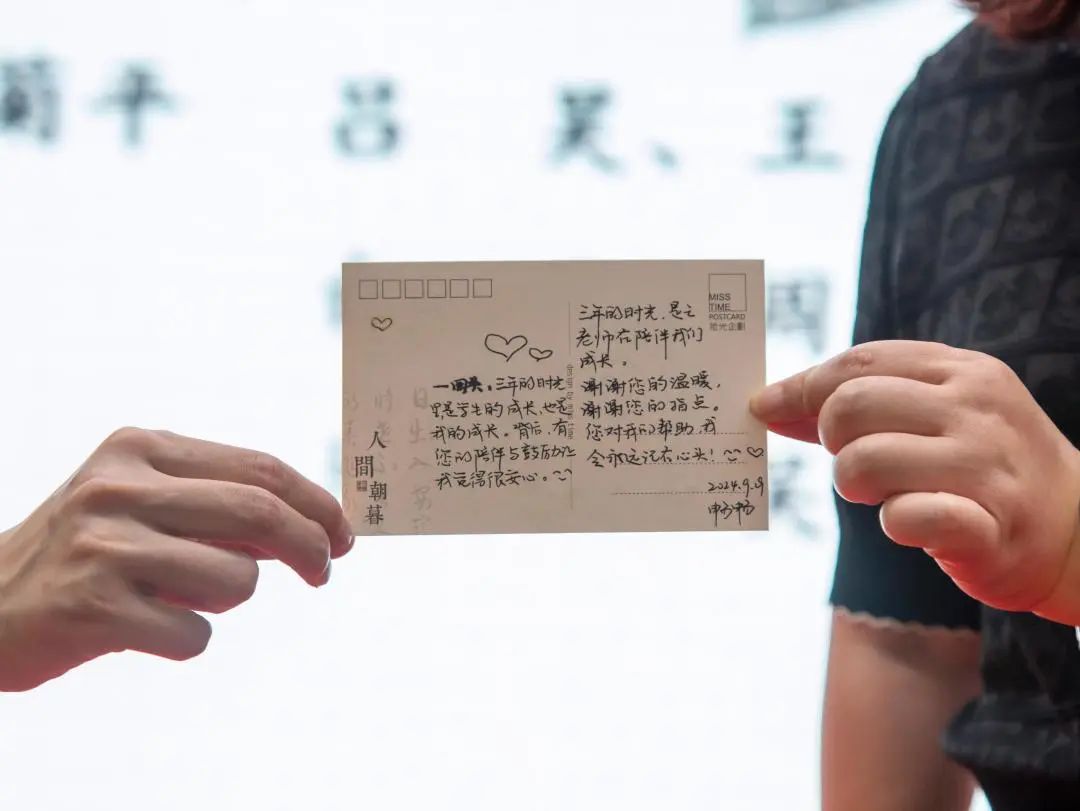 蘭平 吕 昊、王
MISS
TIME
POSTCARD
拾光企劃
一回头，三年的时光
是学生的成长，也是
我的成长。背后，有
您的陪伴与鼓励让
我觉得很安心。
三年的时光，是
老师在陪伴我们
成长。
谢谢您的温暖，
谢谢您的指点。
您对我们的帮助，我
会永远记在心头！
2024.9.9
人間朝暮